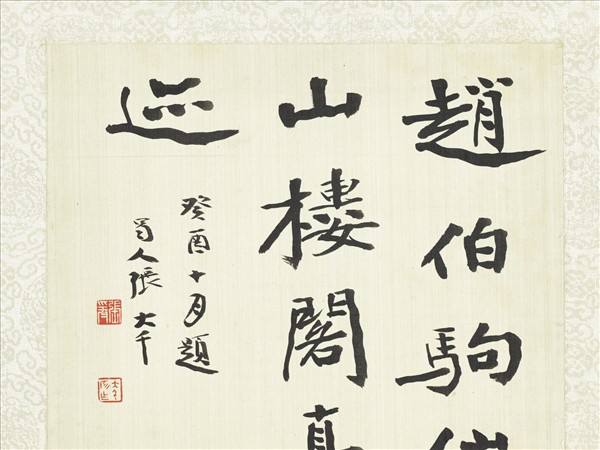 趙伯駒
山樓閣真
迹
癸酉十月題
蜀人張大千
張爰